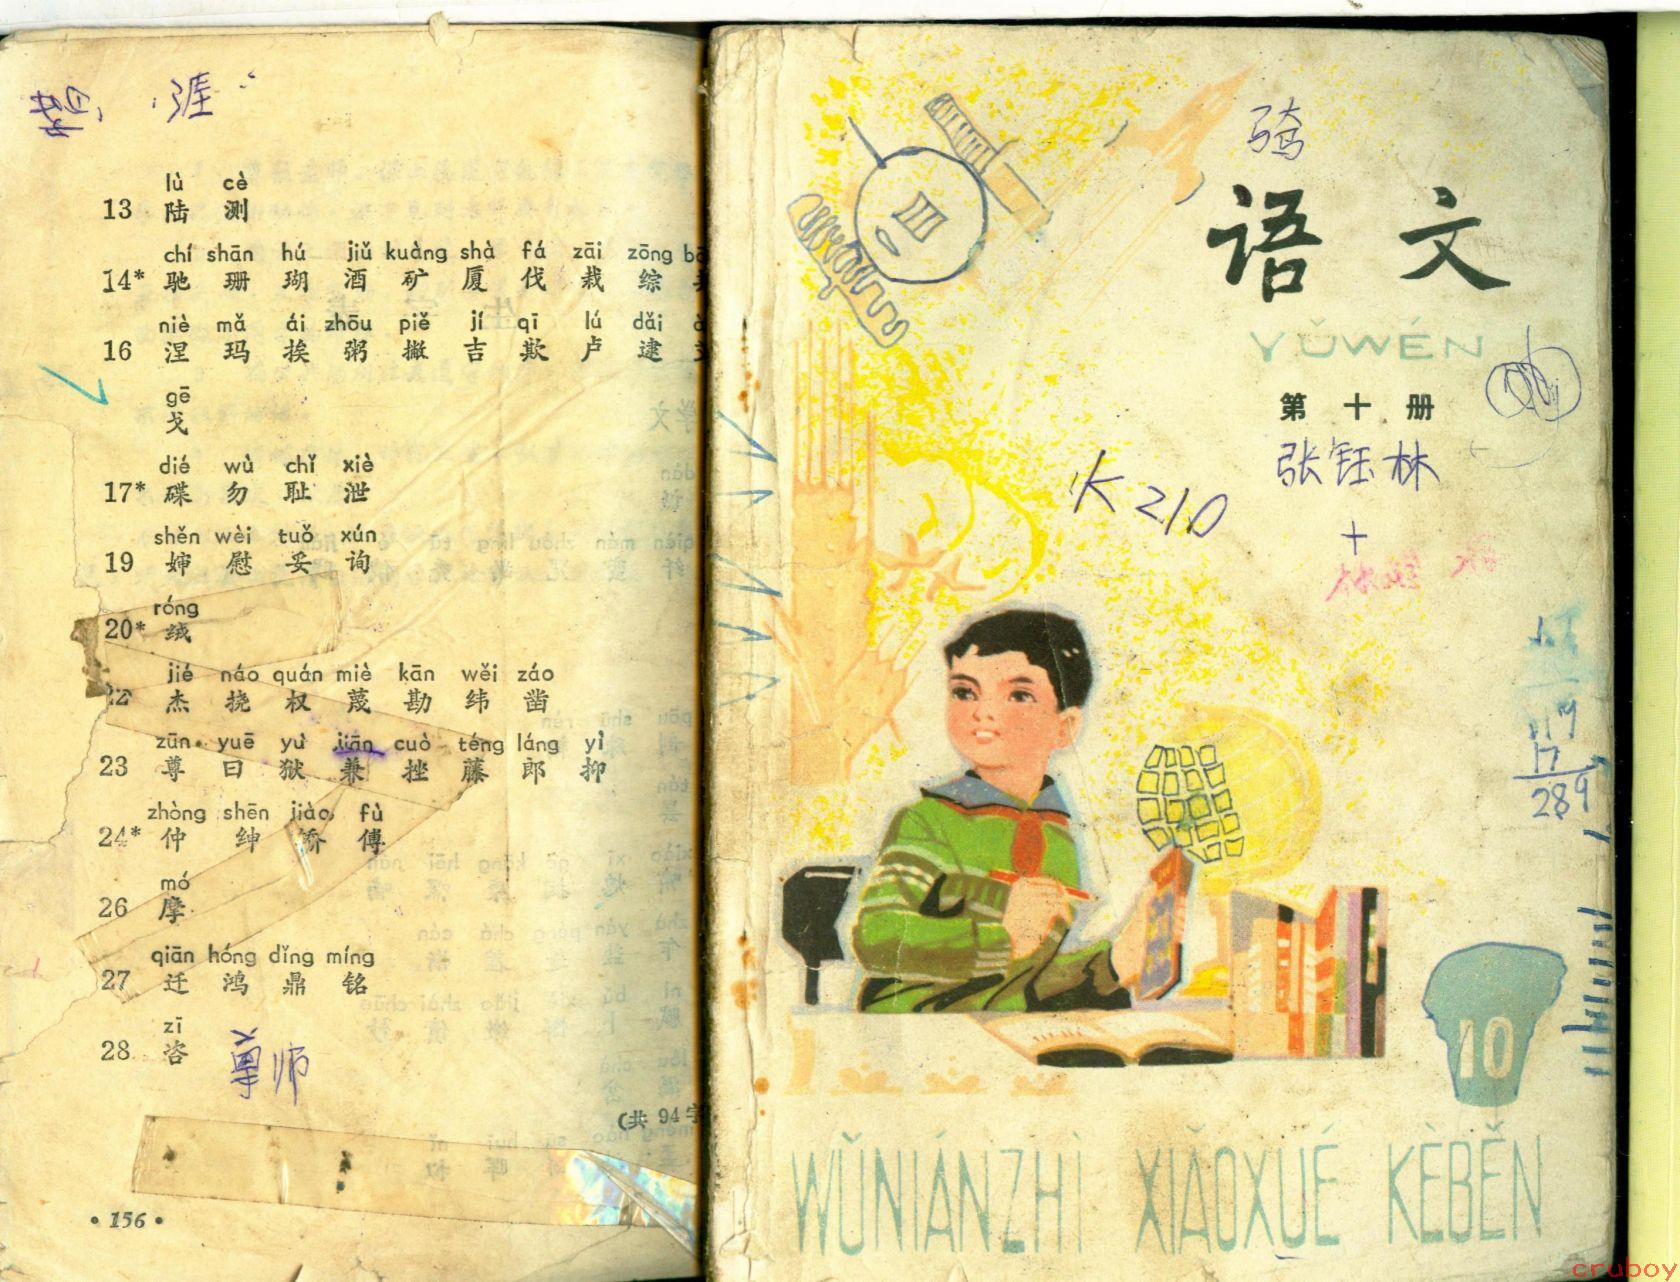 涯
lù cè
13 陆 测
chí shān hú jiǔ kuàng shà fá zāi zōng
14* 驰 珊 瑚 酒 矿 厦 伐 栽 综
niè mǎ ái zhōu piě jí qī lú dǎi
16 涅 玛 挨 粥 撇 吉 欺 卢 逮
gē
戈
dié wù chǐ xiè
17* 碟 勿 耻 泄
shěn wèi tuǒ xún
19 婶 慰 妥 询
róng
20* 绒
jié náo quán miè kān wěi záo
22 杰 挠 权 蔑 勘 纬 凿
zūn yuē yù jiān cuò téng láng yì
23 尊 曰 狱 兼 挫 藤 郎 抑
zhòng shēn jiào fù
24* 仲 绅 轿 傅
mó
26 摩
qiān hóng dǐng míng
27 迁 鸿 鼎 铭
zī
28 咨
(共 94 字
• 156 •
语 文
YǓWÉN
第 十 册
张钰林
K 210
+
17
289
10
WǓNIÁNZHÌ XIǍOXUÉ KÈBĚN
cruboy